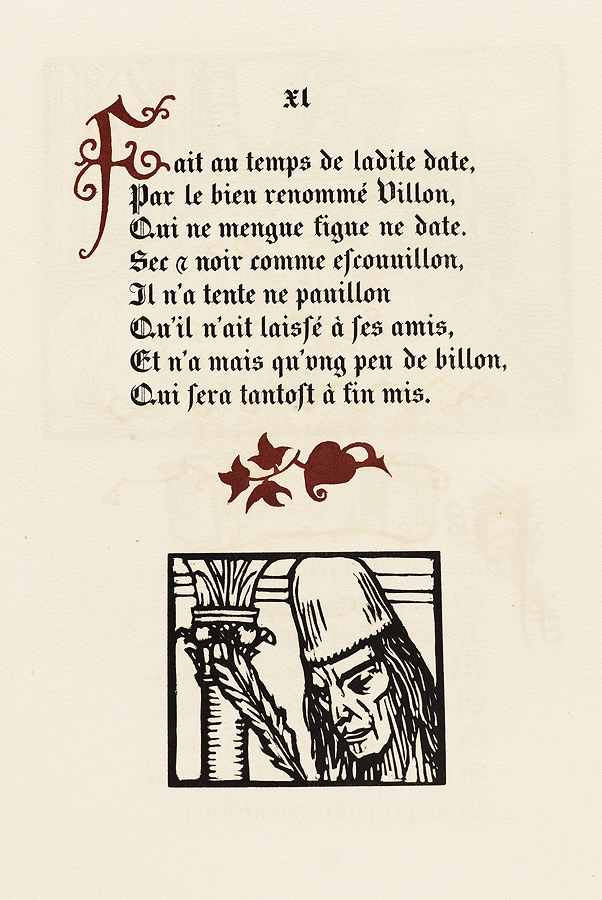 xl
Fait au temps de ladite date,
Par le bieu renommé Villon,
Qui ne mengue figue ne date.
Sec ⁊ noir comme eſcouuillon,
Il n'a tente ne pauillon
Qu'il n'ait laiſſé à ſes amis,
Et n'a mais qu'vng peu de billon,
Qui ſera tantoſt à fin mis.